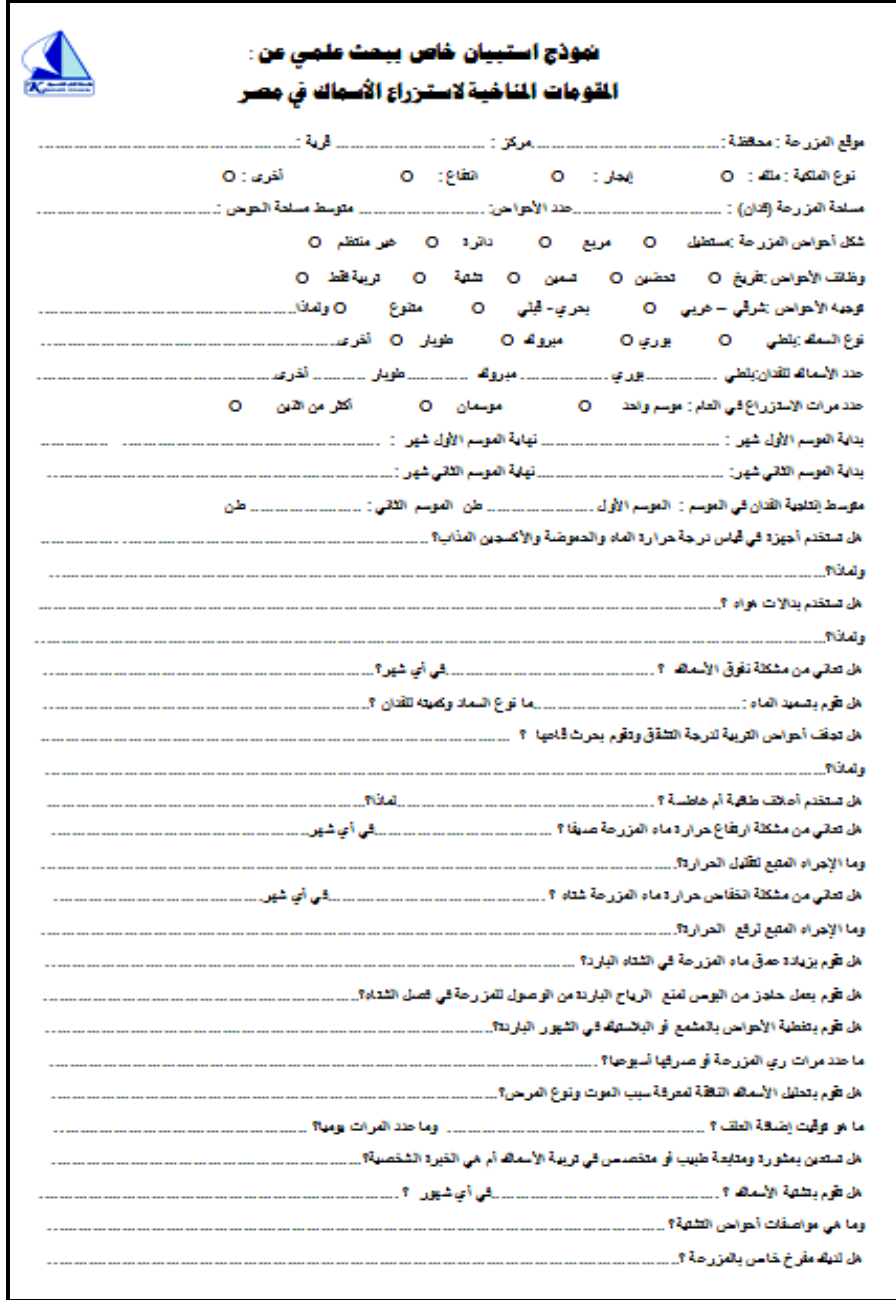 نموذج استبيان خاص ببحث علمي عن :
المقومات المناخية لاستزراع الأسماك في مصر
موقع المزرعة : محافظة :....................مركز : .................... قرية :....................
نوع الملكية : ملك : O إيجار : O انتفاع : O أخرى : O
مساحة المزرعة (فدان) : ....................عدد الأحواض:.................... متوسط مساحة الحوض :....................
شكل أحواض المزرعة :مستطيل O مربع O دائرة O غير منتظم O
وظائف الأحواض :تفريخ O تحضين O تسمين O تشتية O تربية فقط O
توجيه الأحواض :شرقي – غربي O بحري- قبلي O متنوع O ولماذا....................
نوع السمك :بلطي O بوري O مبروك O طوبار O أخرى....................
عدد الأسماك للفدان:بلطي ....................بوري .................... مبروك ....................طوبار .................... أخرى....................
عدد مرات الاستزراع في العام : موسم واحد O موسمان O أكثر من اثنين O
بداية الموسم الأول شهر : .................... نهاية الموسم الأول شهر : ....................
بداية الموسم الثاني شهر: ....................نهاية الموسم الثاني شهر :....................
متوسط إنتاجية الفدان في الموسم : الموسم الأول .................... طن الموسم الثاني : .................... طن
هل تستخدم أجهزة في قياس درجة حرارة الماء والحموضة والأكسجين المذاب؟ ....................
ولماذا؟....................
هل تستخدم بدالات هواء ؟....................
ولماذا؟....................
هل تعاني من مشكلة نفوق الأسماك ؟ ....................في أي شهر؟....................
هل تقوم بتسميد الماء :....................ما نوع السماد وكميته للفدان ؟....................
هل تجفف أحواض التربية لدرجة التشقق وتقوم بحرث قاعها ؟ ....................
ولماذا؟....................
هل تستخدم أعلاف طافية أم غاطسة ؟ ....................لماذا؟....................
هل تعاني من مشكلة ارتفاع حرارة ماء المزرعة صيفا ؟ ....................في أي شهر....................
وما الإجراء المتبع لتقليل الحرارة؟....................
هل تعاني من مشكلة انخفاض حرارة ماء المزرعة شتاء ؟ ....................في أي شهر....................
وما الإجراء المتبع لرفع الحرارة؟....................
هل تقوم بزيادة عمق ماء المزرعة في الشتاء البارد؟ ....................
هل تقوم بعمل حاجز من البوص لمنع الرياح الباردة من الوصول للمزرعة في فصل الشتاء؟....................
هل تقوم بتغطية الأحواض بالمشمع أو البلاستيك في الشهور الباردة؟....................
ما عدد مرات ري المزرعة أو صرفها أسبوعيا؟ ....................
هل تقوم بتحليل الأسماك النافقة لمعرفة سبب الموت ونوع المرض؟....................
ما هو توقيت إضافة العلف ؟ .................... وما عدد المرات يوميا؟ ....................
هل تستعين بمشورة ومتابعة طبيب أو متخصص في تربية الأسماك أم هي الخبرة الشخصية؟....................
هل تقوم بتشتية الأسماك ؟ ....................في أي شهور ؟ ....................
وما هي مواصفات أحواض التشتية؟ ....................
هل لديك مفرخ خاص بالمزرعة ؟....................